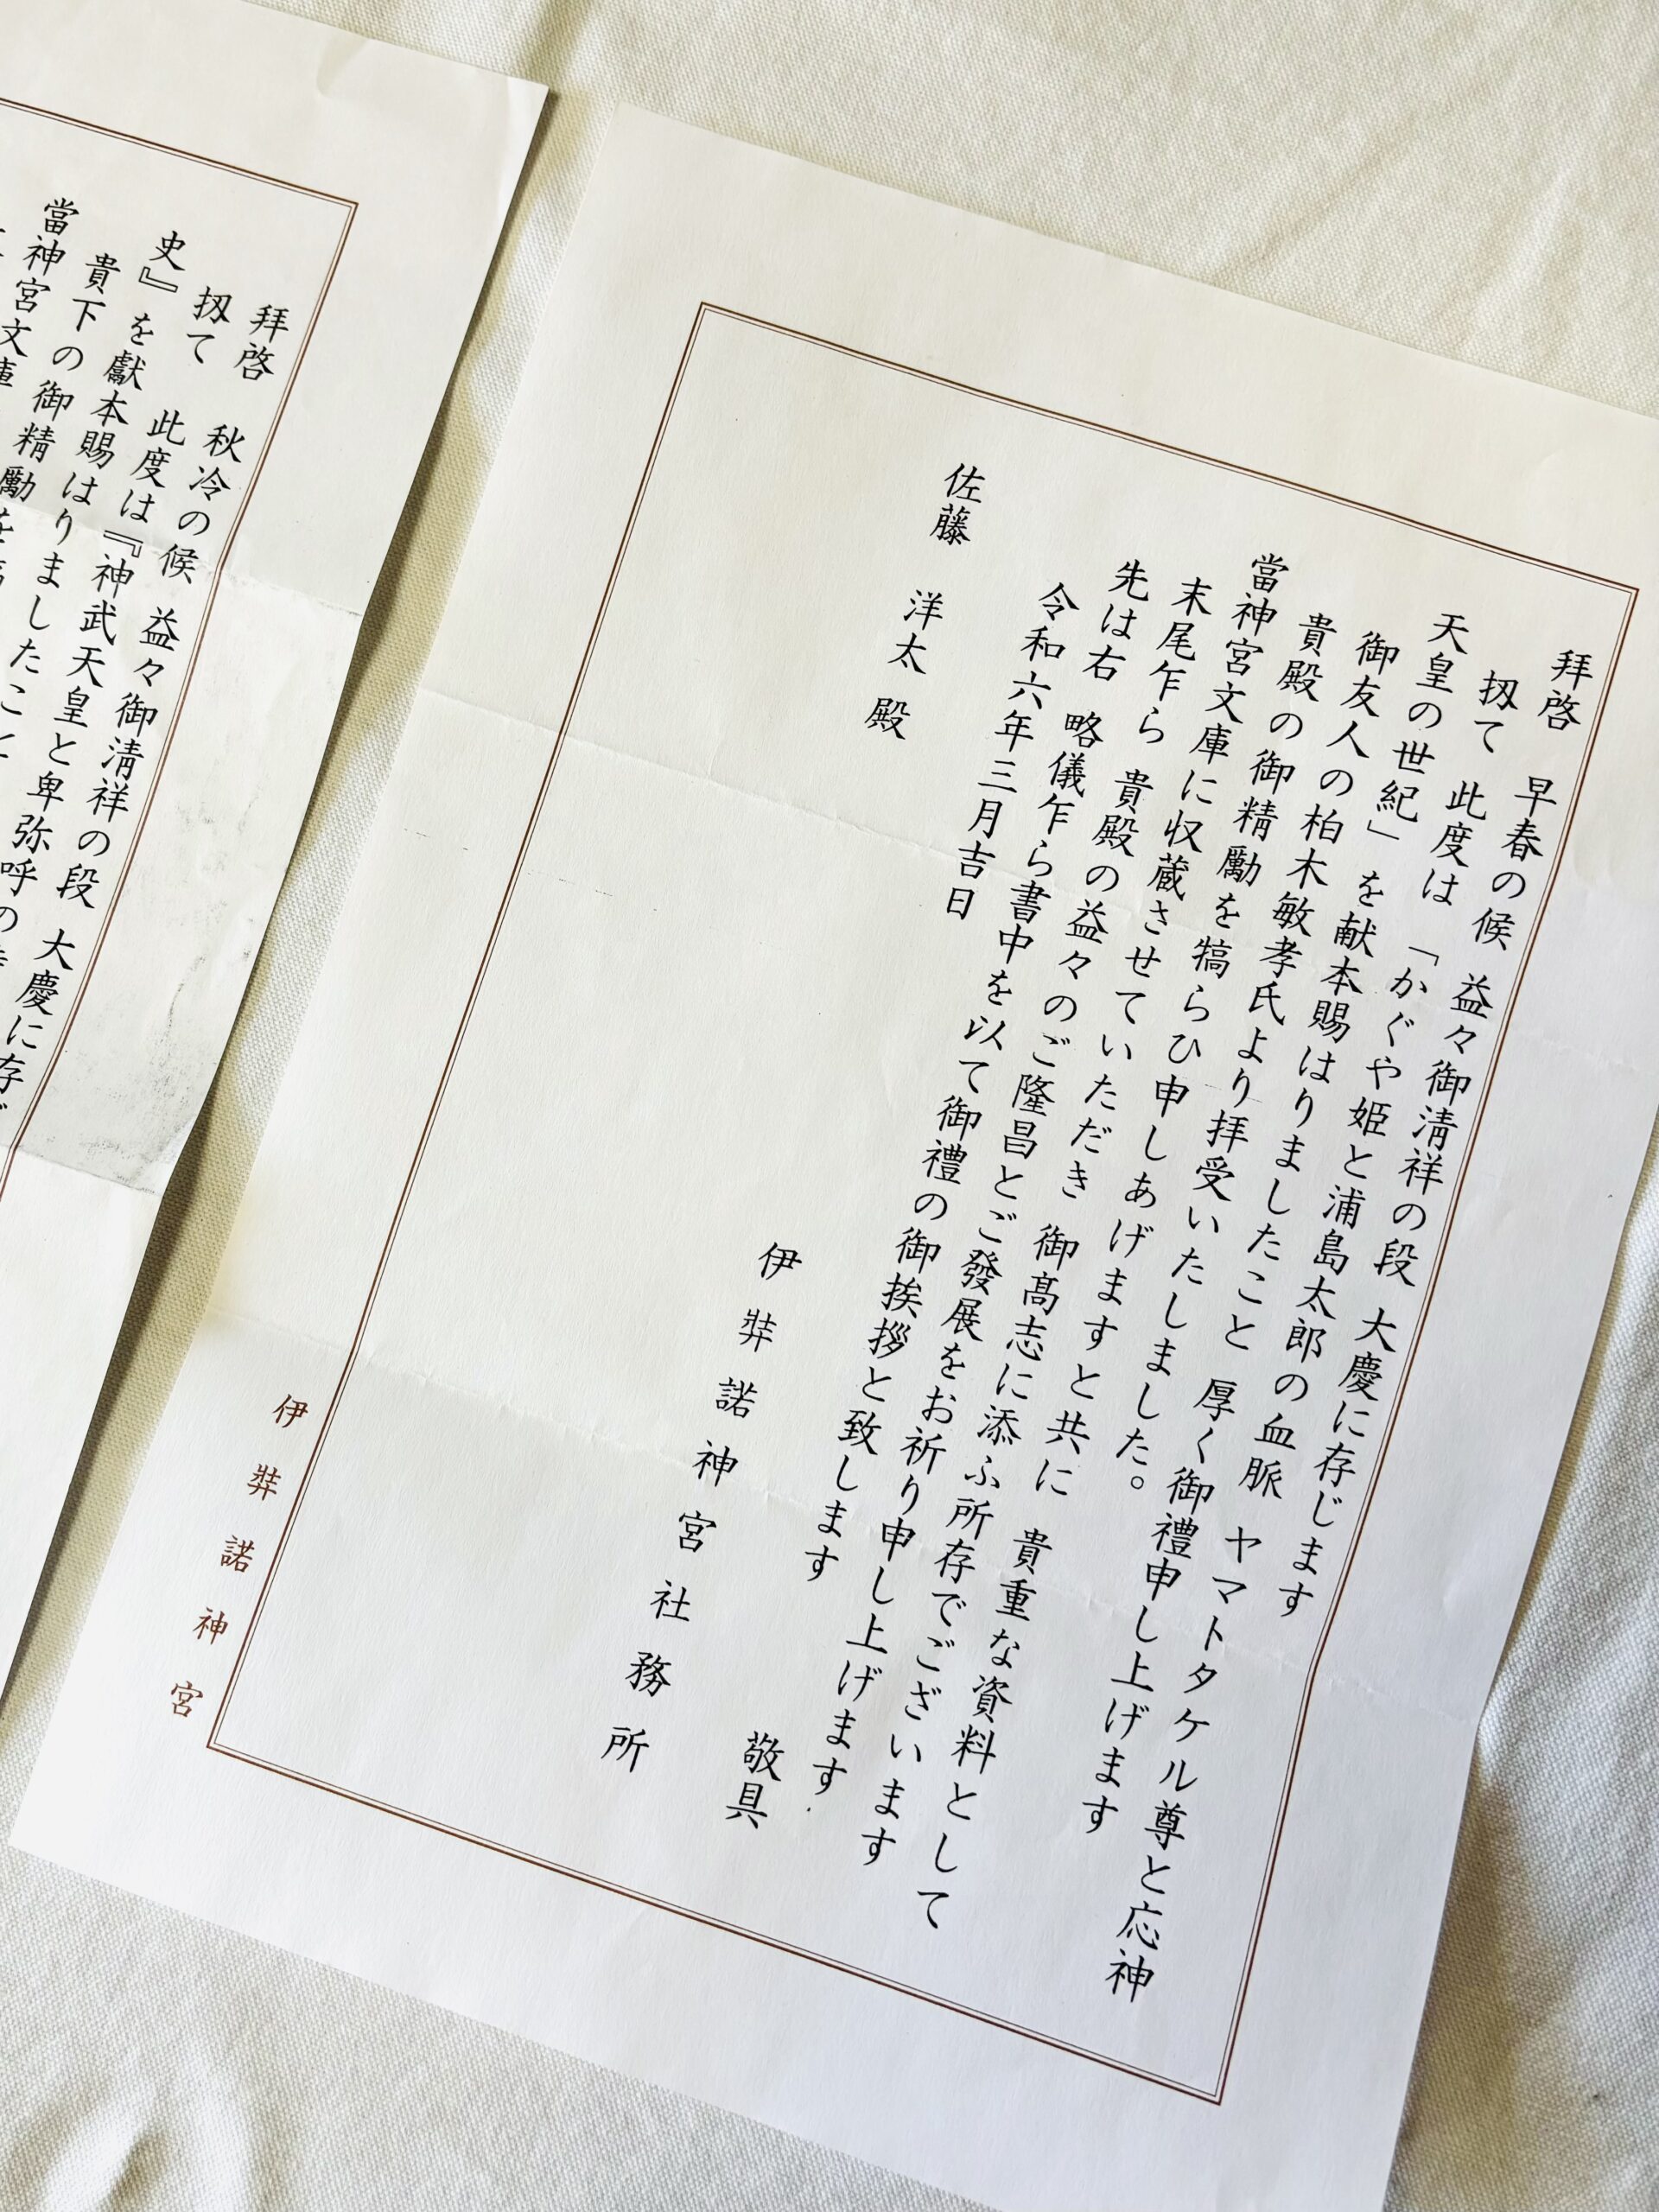 拝啓 早春の候 益々御清祥の段 大慶に存じます
扨て 此度は 「かぐや姫と浦島太郎の血脈 ヤマトタケル尊と応神
天皇の世紀」を献本賜はりましたこと 厚く御禮申し上げます
御友人の柏木敏孝氏より拝受いたしました。
貴殿の御精勵を犒らひ申しあげますと共に 貴重な資料として
當神宮文庫に収蔵させていただき 御髙志に添ふ所存でございます
末尾乍ら 貴殿の益々のご隆昌とご發展をお祈り申し上げます
先は右 略儀乍ら書中を以て御禮の御挨拶と致します
敬具
令和六年三月吉日
伊弉諾神宮社務所
佐藤 洋太 殿
伊弉諾神宮
拝啓 秋冷の候 益々御清祥の段 大慶に存じ
扨て 此度は『神武天皇と卑弥呼の
史』を献本賜はりましたこと
貴下の御精勵を
當神宮文庫